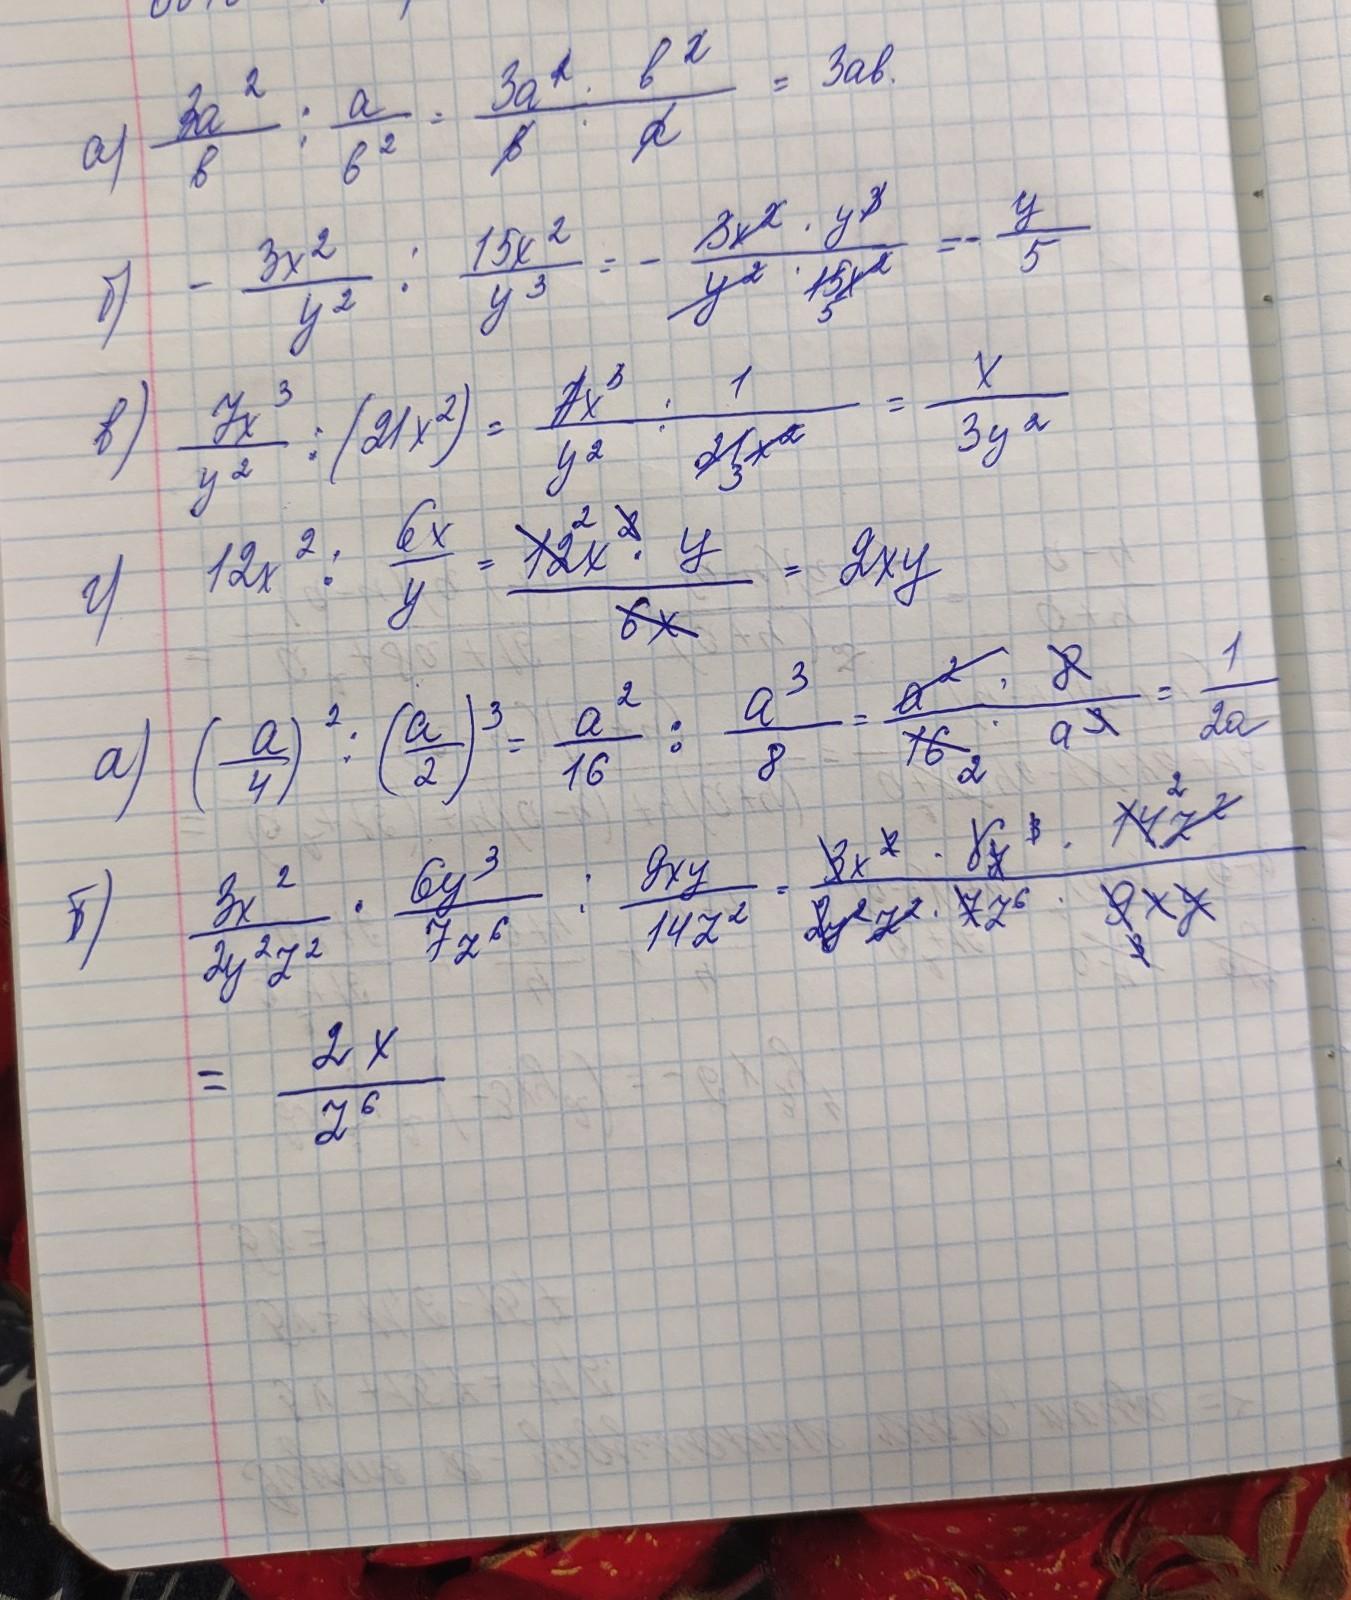 а) 3a²/b : a/b² = 3a² · b² / b · a = 3ab.
б) - 3x²/y² : 15x²/y³ = - 3x² · y³ / y² · 15x² 5 = - y/5
в) 7x³/y² : (21x²) = 7x³/y² : 1/21x² 3 = x/3y²
г) 12x² : 6x/y = 12² x² · y / 6x = 2xy
а) (a/4)² : (a/2)³ = a²/16 : a³/8 = a² · 8 / 16 2 · a³ = 1/2a
б) 3x²/2y²z² · 6y³/7z⁶ : 9xy/14z² = 3x² · 6y³ · 14² z² / 2y²z² · 7z⁶ · 9xy 3
= 2x/z⁶